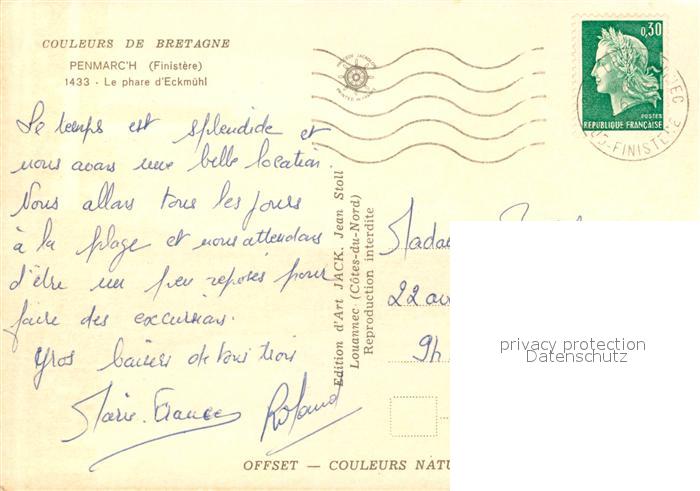 COULEURS DE BRETAGNE
PENMARC'H (Finistère)
1433 - Le phare d'Eckmühl
Le temps est splendide et
nous avons une belle location.
Nous allons tous les jours
à la plage et nous attendons
d'être un peu reposés pour
faire des excursions.
Gros baisers de tous trois
Marie-France Roland
Edition d'Art JACK, Jean Stoll
Louannec (Côtes-du-Nord)
Reproduction interdite
0,30
POSTES
REPUBLIQUE FRANÇAISE
FINISTERE
Madam
22 av
94
privacy protection
Datenschutz
OFFSET — COULEURS NATU